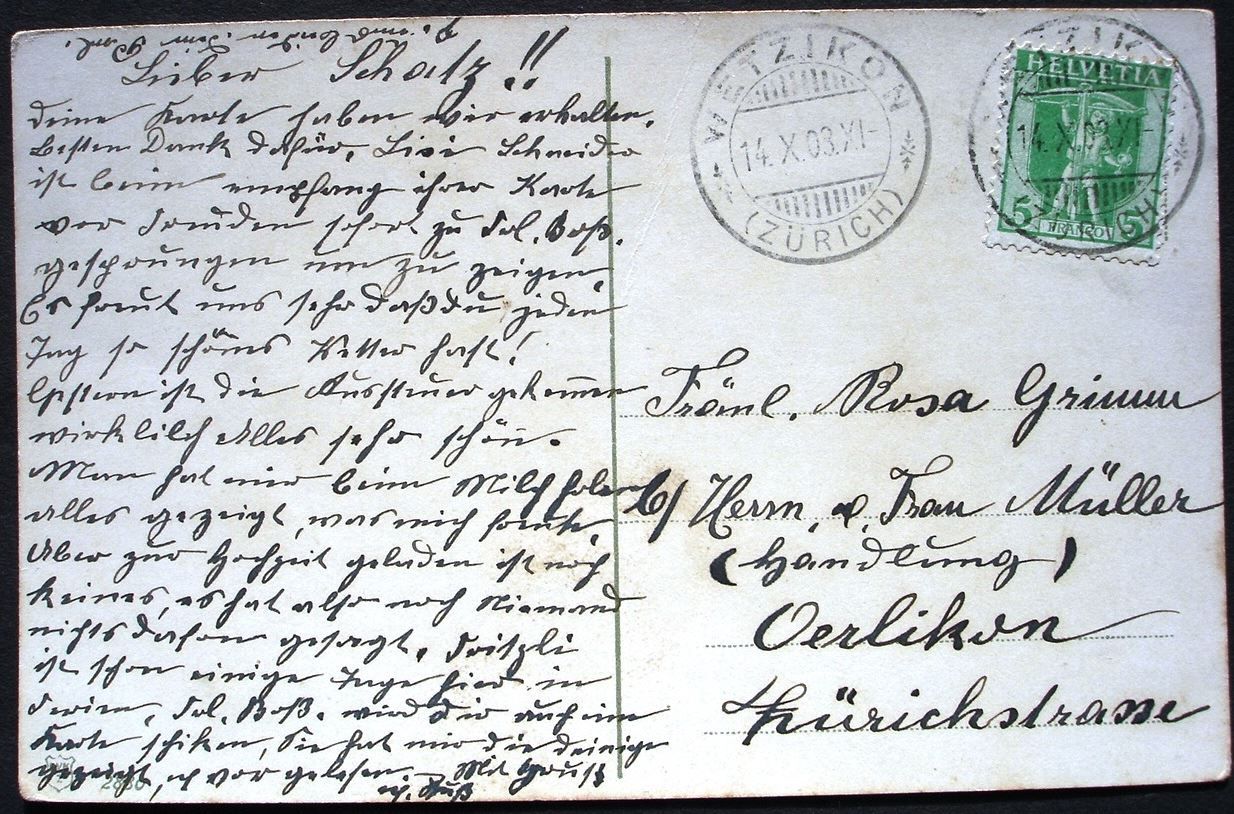 Lieber Schatz!!
deine Karte haben wir erhalten,
besten Dank dafür. Lisi Schneider
ist beim empfang ihrer Karte
vor Freuden sofort zu Frl. Boß.
gesprungen um zu zeigen.
Es freut uns sehr daß du jeden
Tag so schönes Wetter hast!
Gestern ist die Aussteuer gekommen
wirklilch Alles sehr schön.
Man hat mir beim Milch holen
alles gezeigt, was mich freute.
Aber zur Hochzeit geladen ist noch
keines, es hat also noch Niemand
nichts dafon gesagt. Fritzli
ist schon einige Tage hier in
Ferien, Frl. Boß. wird dir auch eine
Karte schiken, Sie hat mir die deinige
gezeigt, u. vor gelesen. Mit Gruß
u. Kuß
2886
WETZIKON
14.X.08.XI-
(ZÜRICH)
HELVETIA
5 FRANCO 5
14.X.08.XI-
Fräul. Rosa Grimm
b/ Herrn, u. Frau Müller
(Handlung)
Oerlikon
Zürichstrasse